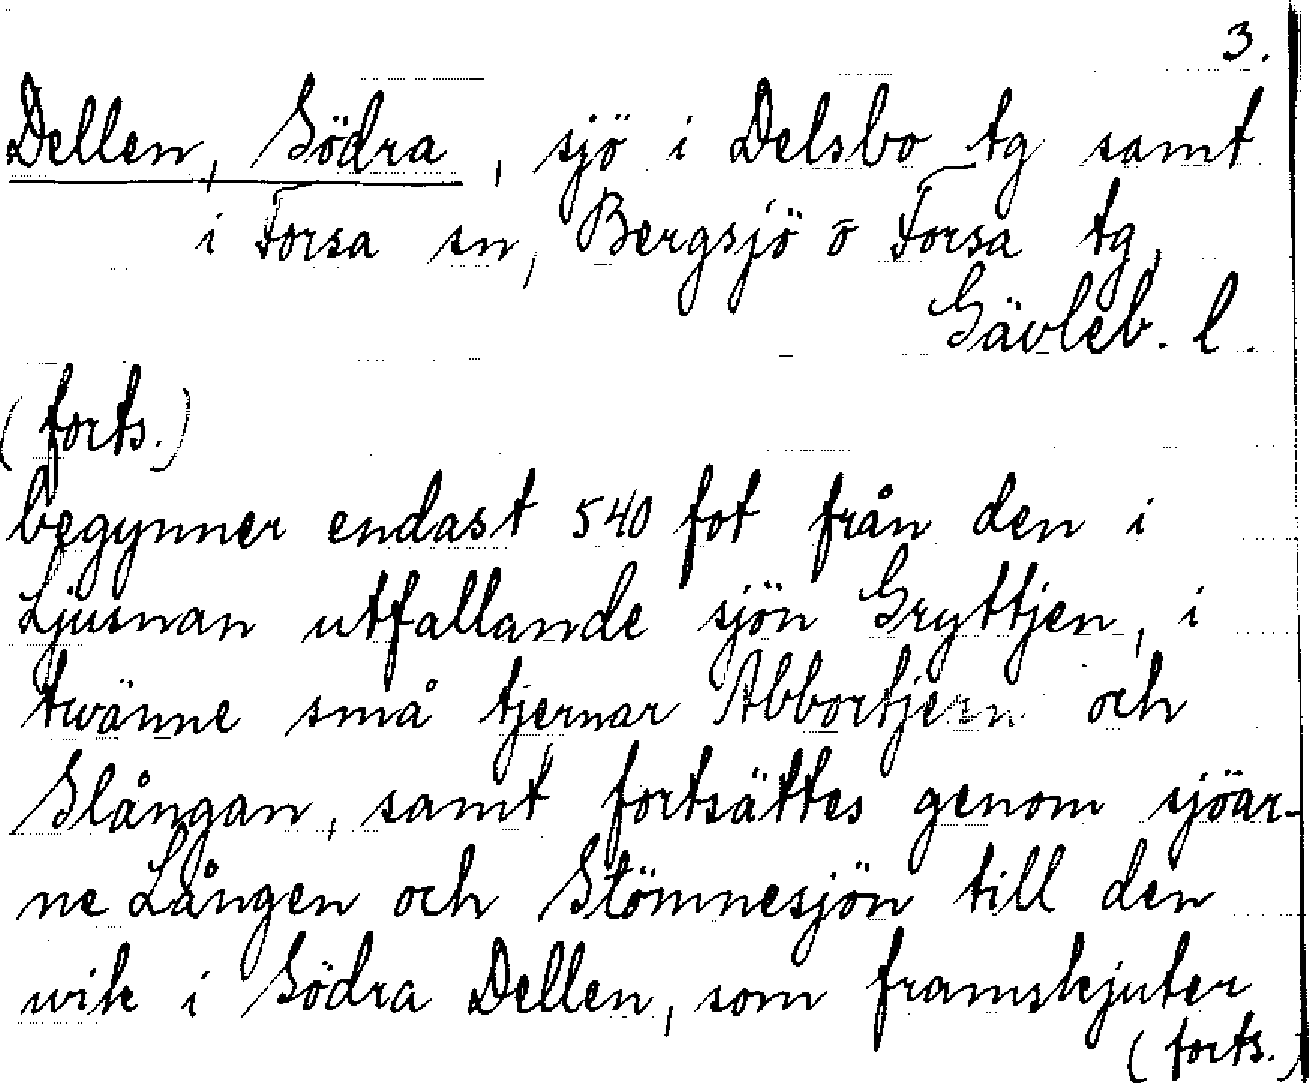 3.
Dellen, Södra, sjö i Delsbo tg samt
i Forsa sn, Bergsjö o Forsa tg,
Gävleb. l.
(forts.)
begynner endast 540 fot från den i
Ljusnan utfallande sjön Gryttjen, i
twänne små tjernar Abbortjern och
Slångan, samt fortsättes genom sjöar-
ne Lången och Stömnesjön till den
wik i Södra Dellen, som framskjuter
(forts.)